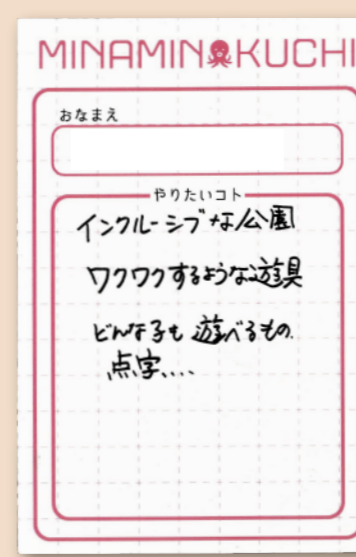 MINAMINOKUCHI
おなまえ
やりたいコト
インクルーシブな公園
ワクワクするような遊具
どんな子も遊べるもの.
点字....